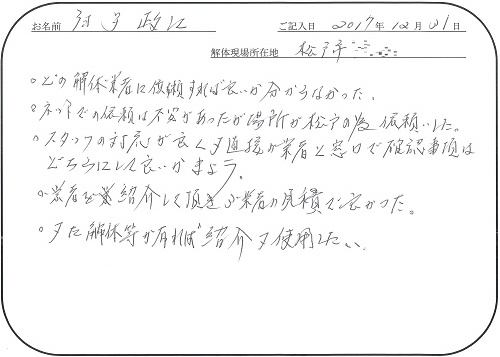 お名前 政江 ご記入日 2017年12月21日
解体現場所在地 松戸市
○どの解体業者に依頼すれば良いか分からなかった。
○ネットでの依頼は不安があったが場所が松戸の為依頼いした。
○スタッフの対応が良く又直接が業者と窓口で確認事項は
どちらにして良いかまよう。
○業者を紹介して頂き 業者の見積で良かった。
○又た解体等が有れば紹介又使用したい。